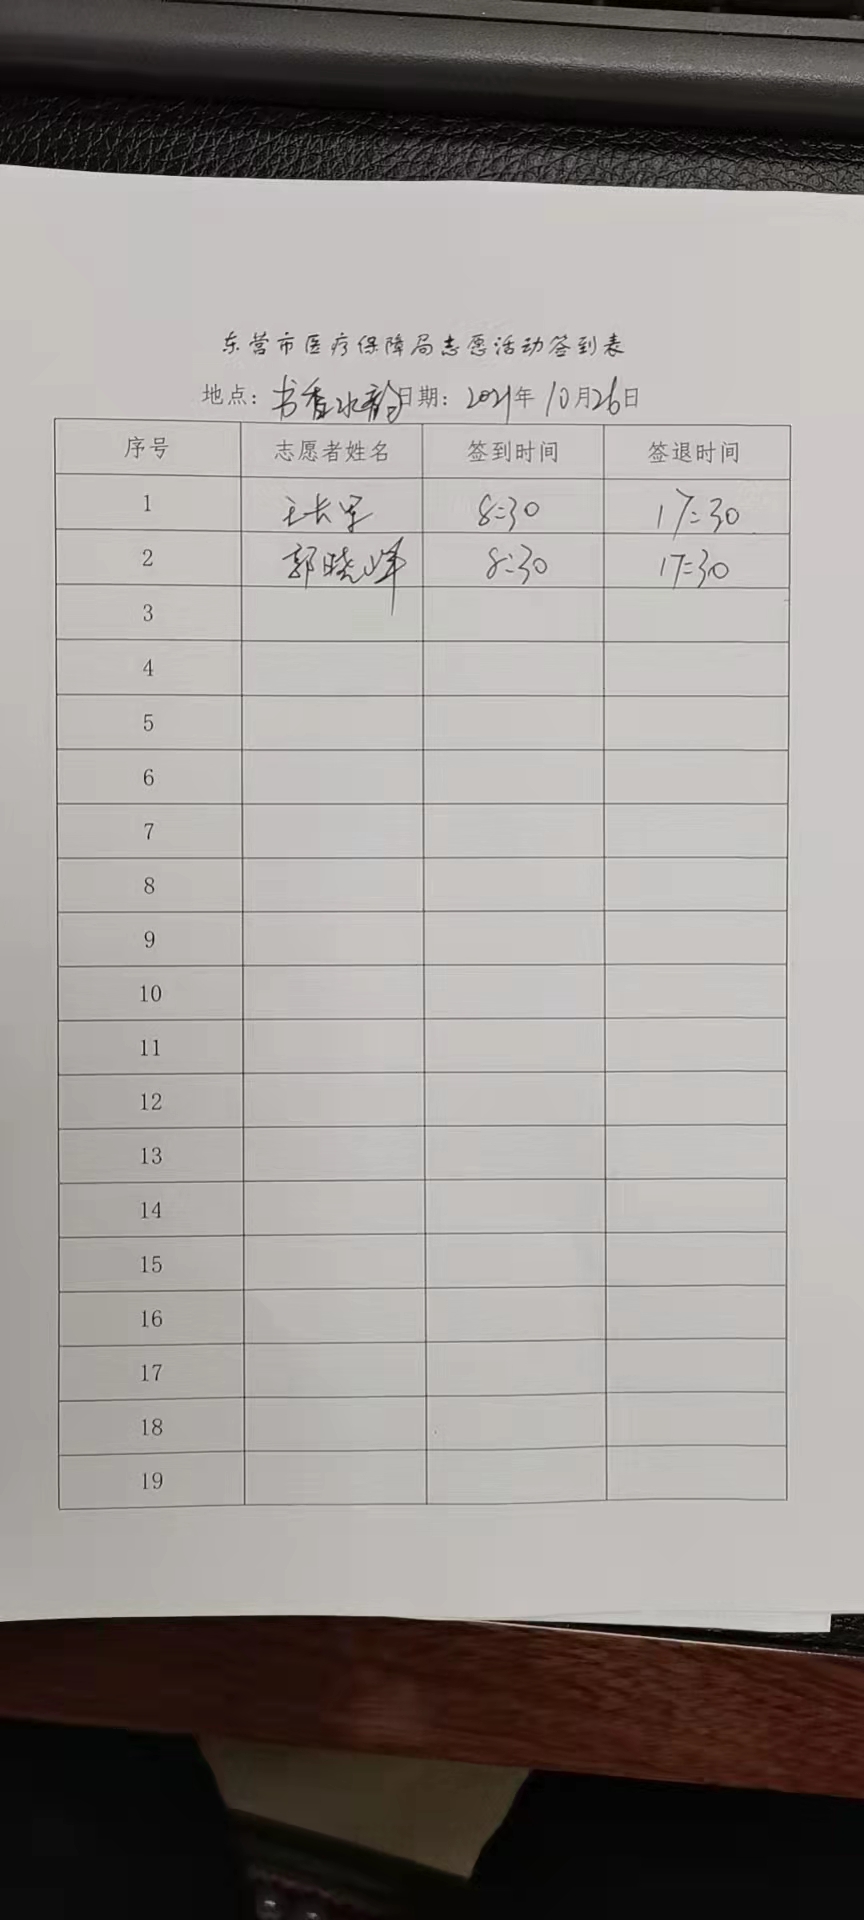 东营市医疗保障局志愿活动签到表
地点：书香水韵日期：2021年10月26日
序号 志愿者姓名 签到时间 签退时间
1 王长军 8:30 17:30
2 郭晓峰 8:30 17:30
3
4
5
6
7
8
9
10
11
12
13
14
15
16
17
18
19